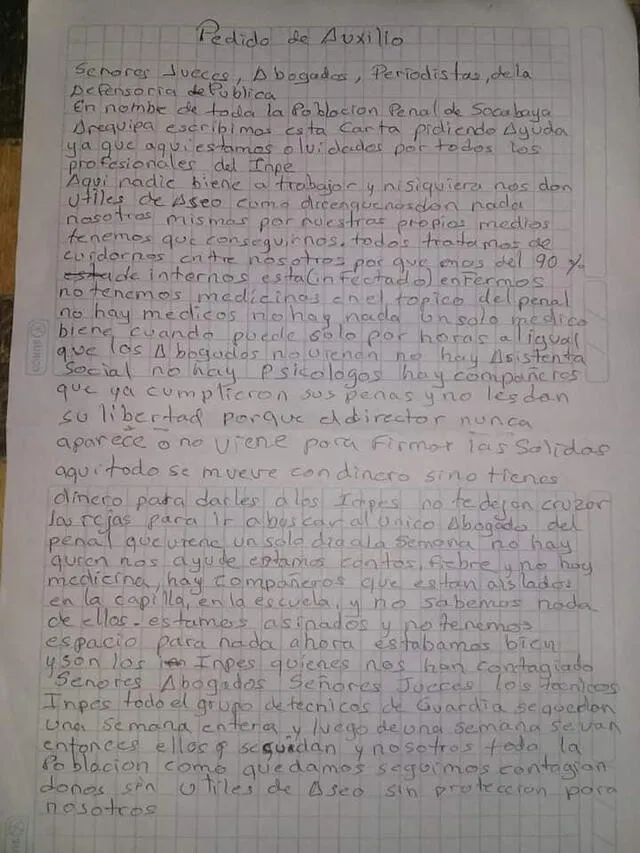 Pedido de Auxilio
Señores Jueces, Abogados, Periodistas, de la
Defensoria de Publica
En nombre de toda la Poblacion Penal de Socabaya
Arequipa escribimos esta Carta pidiendo Ayuda
ya que aqui estamos olvidados por todos los
profesionales del Inpe
Aqui nadie biene a trabajar y nisiquiera nos dan
utiles de Aseo como dicenquenosdan nada
nosotros mismas por nuestras propios medios
tenemos que conseguirnos. todos tratamos de
cuidarnos entre nosotros por que mas del 90 %
de internos esta (infectado) enfermos
no tenemos medicinas en el topico del penal
no hay medicos no hay nada un solo medico
biene cuando puede solo por horas al igual
que los Abogados no vienen no hay Asistenta
Social no hay Psicologos hay compañeros
que ya cumplieron sus penas y no les dan
su libertad porque el director nunca
aparece o no viene para firmar las Salidas
aqui todo se mueve con dinero si no tienes
dinero para darles a los Inpes no te dejan cruzar
las rejas para ir a buscar al unico Abogado del
penal que viene un solo dia a la Semana no hay
quien nos ayude estamos con tos, fiebre y no hay
medicina, hay compañeros que estan aislados
en la capilla, en la escuela, y no sabemos nada
de ellos. estamos asinados y no tenemos
espacio para nada ahora estabamos bien
y son los Inpes quienes nos han contagiado
Señores Abogados Señores Jueces los tecnicos
Inpes todo el grupo de tecnicos de Guardia sequedan
una semana entera y luego de una semana se van
entonces ellos se quidan y nosotros toda la
Poblacion como quedamos seguimos contagian
donos sin utiles de Aseo sin proteccion para
nosotros